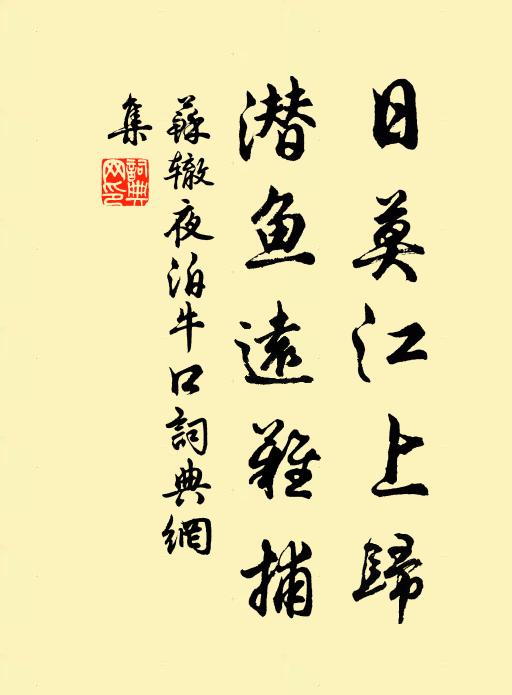 日莫江上歸
潜鱼遠難捕
蘇辙夜泊牛口詞典網
集
詞典网印